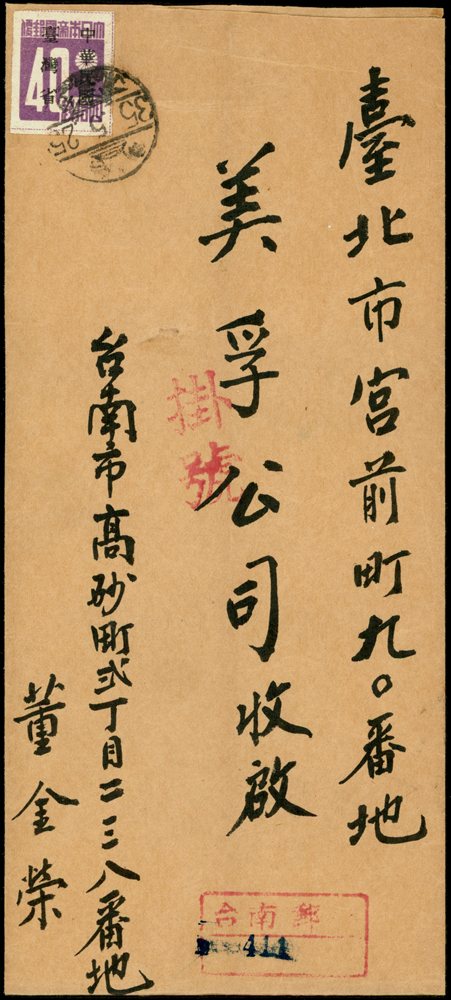 臺北市宮前町九〇番地
美孚公司收啟
掛號
台南市高砂町弍丁目二三八番地
董金榮
中華民國
臺灣省
40
台南郵
411